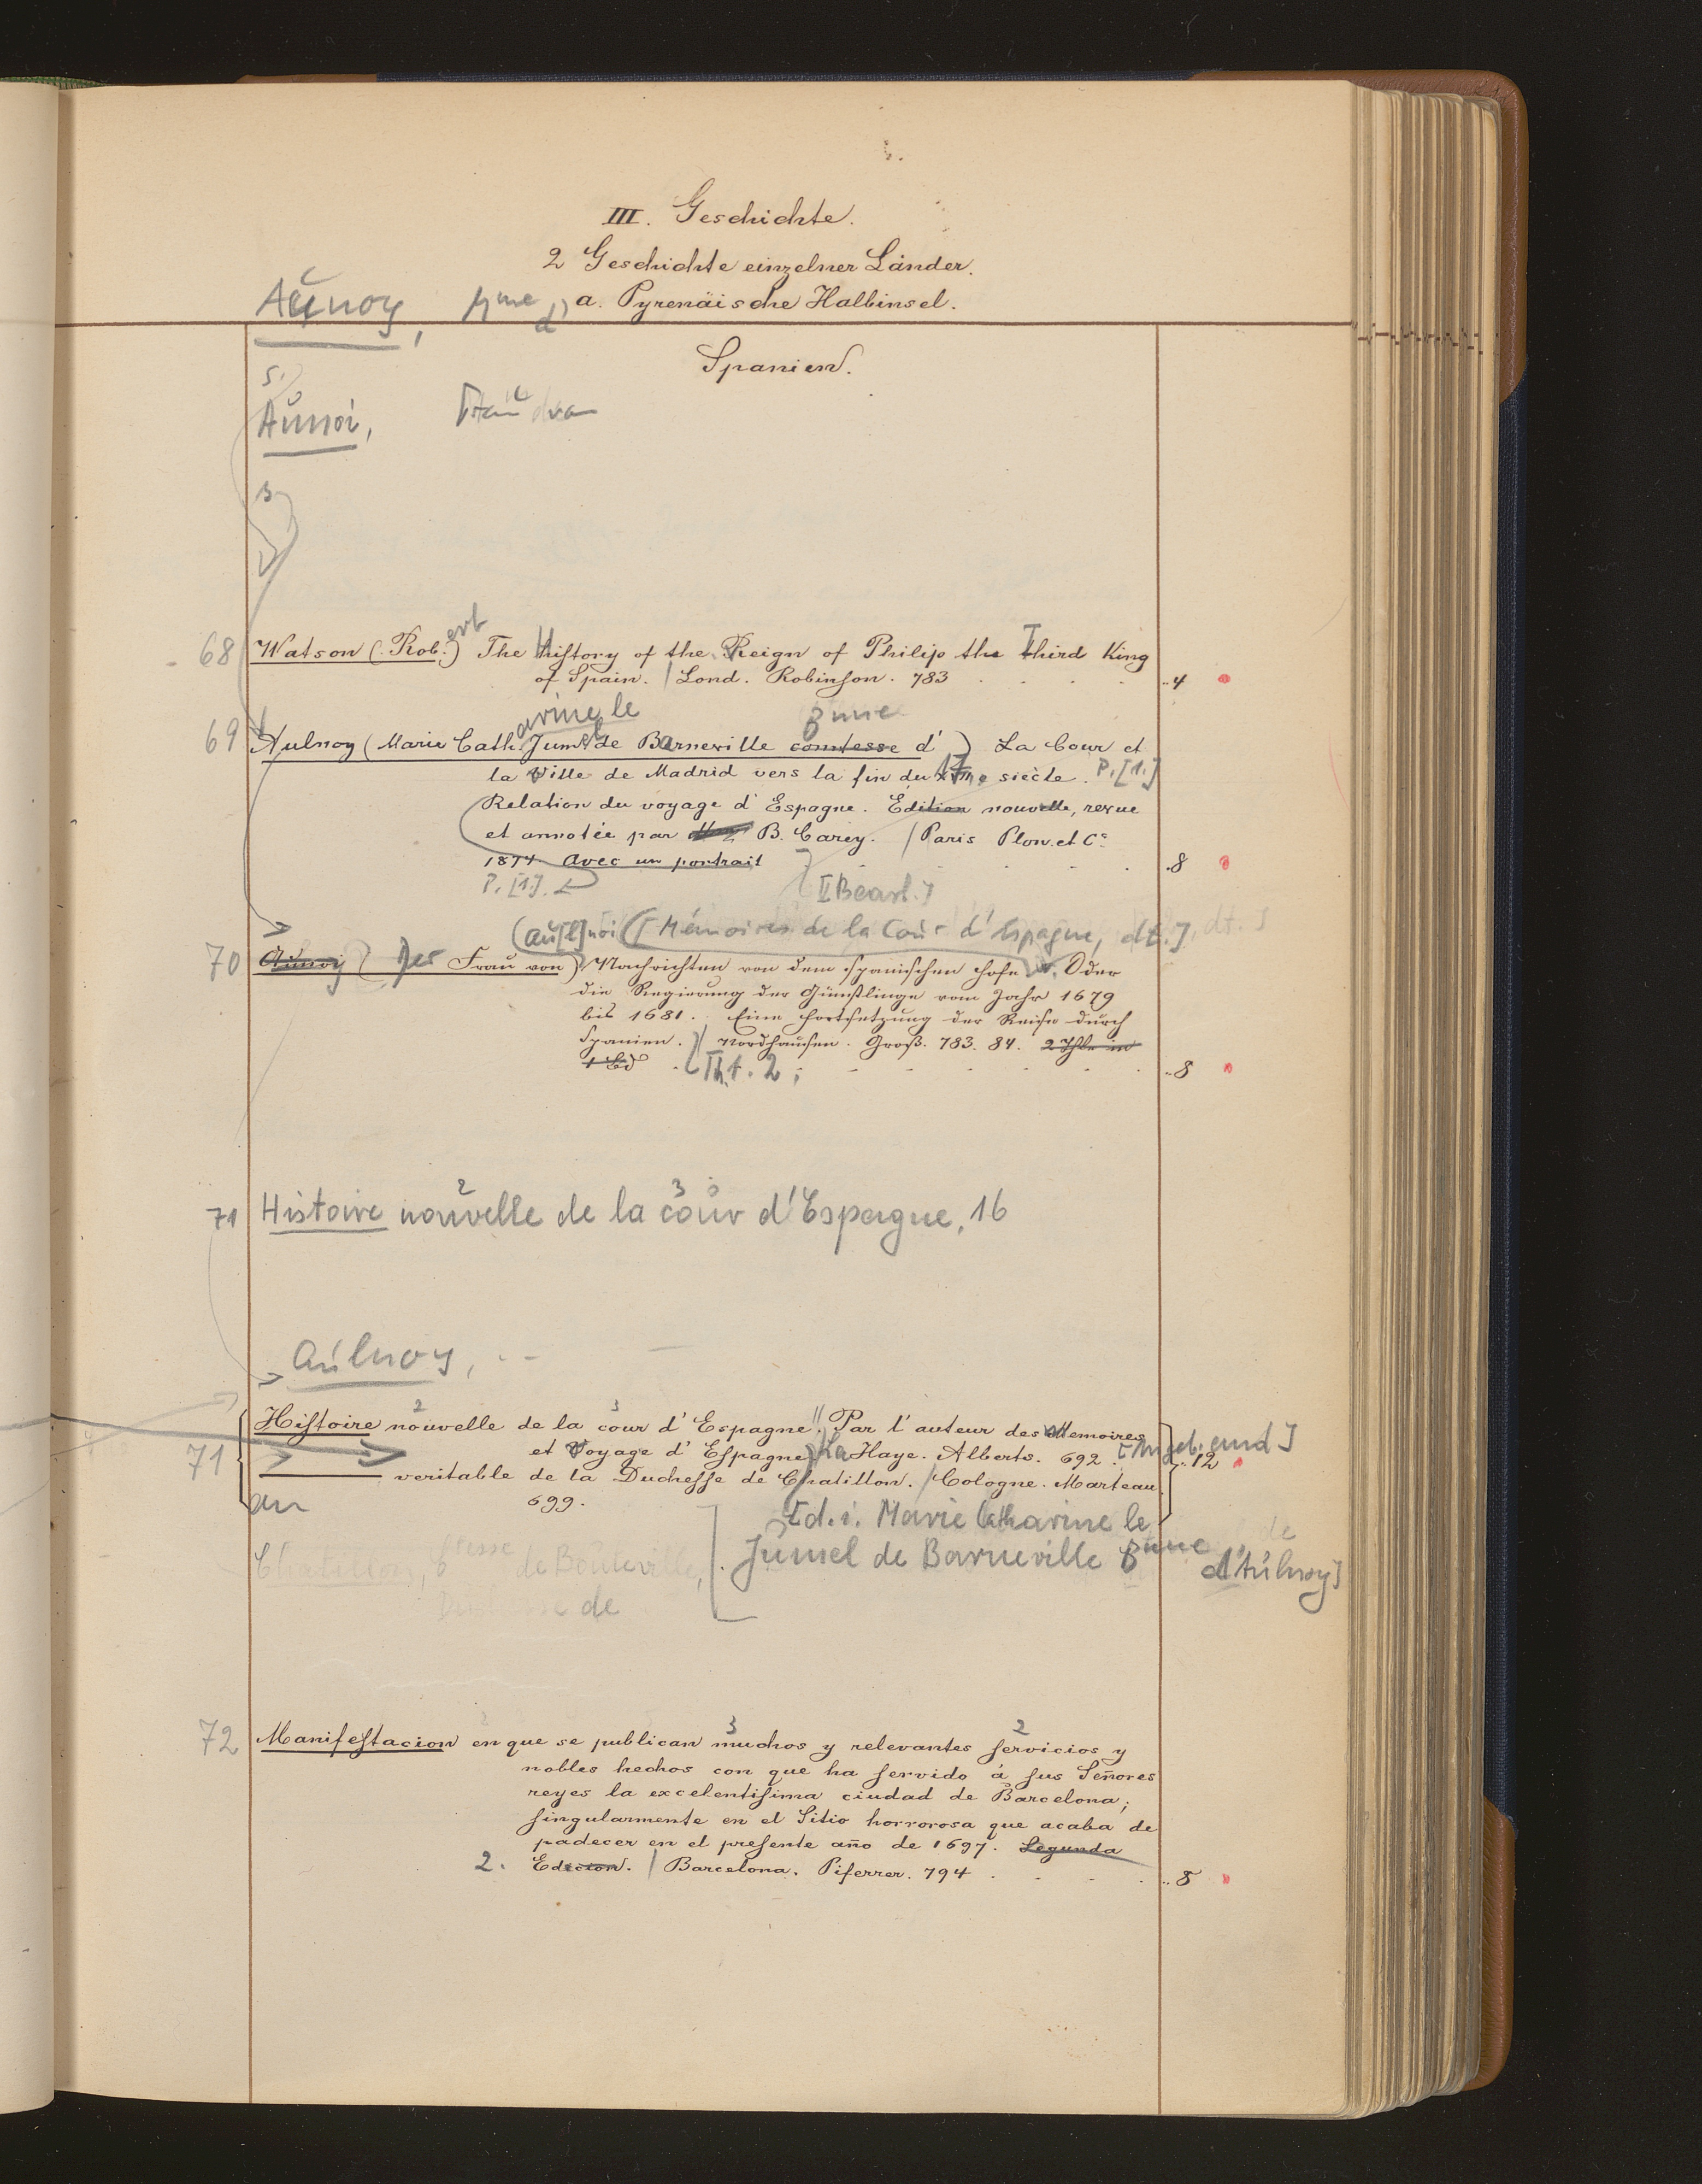 III. Geschichte.
2 Geschichte einzelner Länder.
a. Pyrenäische Halbinsel.
Aŭnoy,
Spanien.
s.
Aŭnoi,
68 Watson (Rob.ert) The History of the Reign of Philip the Third King
of Spain. / Lond. Robinson. 783 . . . . ..4
arine le
69 Aulnoy (Marie Cath. Jumel de Barneville comtesse d') La Cour et
la Ville de Madrid vers la fin du 17e siècle. P. [1.]
Relation du voyage d'Espagne. Edition nouvelle, revue
et annotée par B. Carey. / Paris Plon et Cᵉ
1874. Avec un portrait . . . .8
P. [1.]
[Bearb.]
(Aŭ[l]noi [Mémoires de la Coŭr d'Espagne, dt.]
70 Aŭnoy (Der Fraŭ von) Nachrichten von dem spanischen Hofe Oder
die Regierung der Günstlinge vom Jahr 1679
bis 1681. Eine Fortsetzung der Reise dŭrch
Spanien. / Nordhaŭsen. Groß. 783. 84. 2 Thle in
1 Bd . . . . ..8
Tht. 2;
71 Histoire noŭvelle de la coŭr d'Espagne, 16
2 3
Aŭlnoy,
2 3
71 Histoire nouvelle de la cour d'Espagne. Par l'auteur des Memoires
et Voyage d'Espagne La Haye. Alberts. 692. [Angeb. and] ..12
—— veritable de la Duchesse de Chatillon. / Cologne. Marteau.
699.
an
[d. i. Marie Catharine le
Jumel de Barneville
d'Aŭlnoy]
Chatillon, de Boŭteville,
de
3 2
72 Manifestacion en que se publican muchos y relevantes servicios y
nobles hechos con que ha servido à sus Señores
reyes la excelentisima ciudad de Barcelona;
singularmente en el Sitio horrorosa que acaba de
padecer en el presente año de 1697. Segunda
2. Edicion. / Barcelona. Piferrer. 794 . . . . ..8